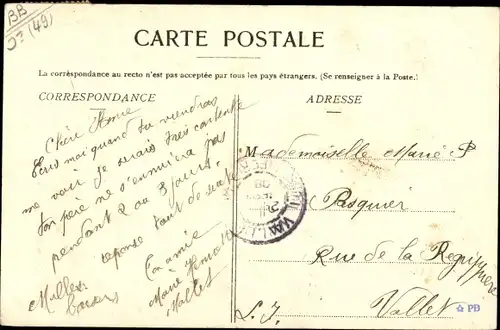 BB
(49)
CARTE POSTALE
La correspondance au recto n'est pas acceptée par tous les pays étrangers. (Se renseigner à la Poste.)
CORRESPONDANCE
Chère Amie
Ecris moi quand tu viendras
me voir je serais très contente
ton père ne s'ennuiera pas
pendant 2 ou 3 jours.
réponse tout de suite
Ton amie
Marie
Vallet
Milles
baisers
ADRESSE
Mademoiselle Marie P
Pasquier
Rue de la
Vallet
L. I.
PB